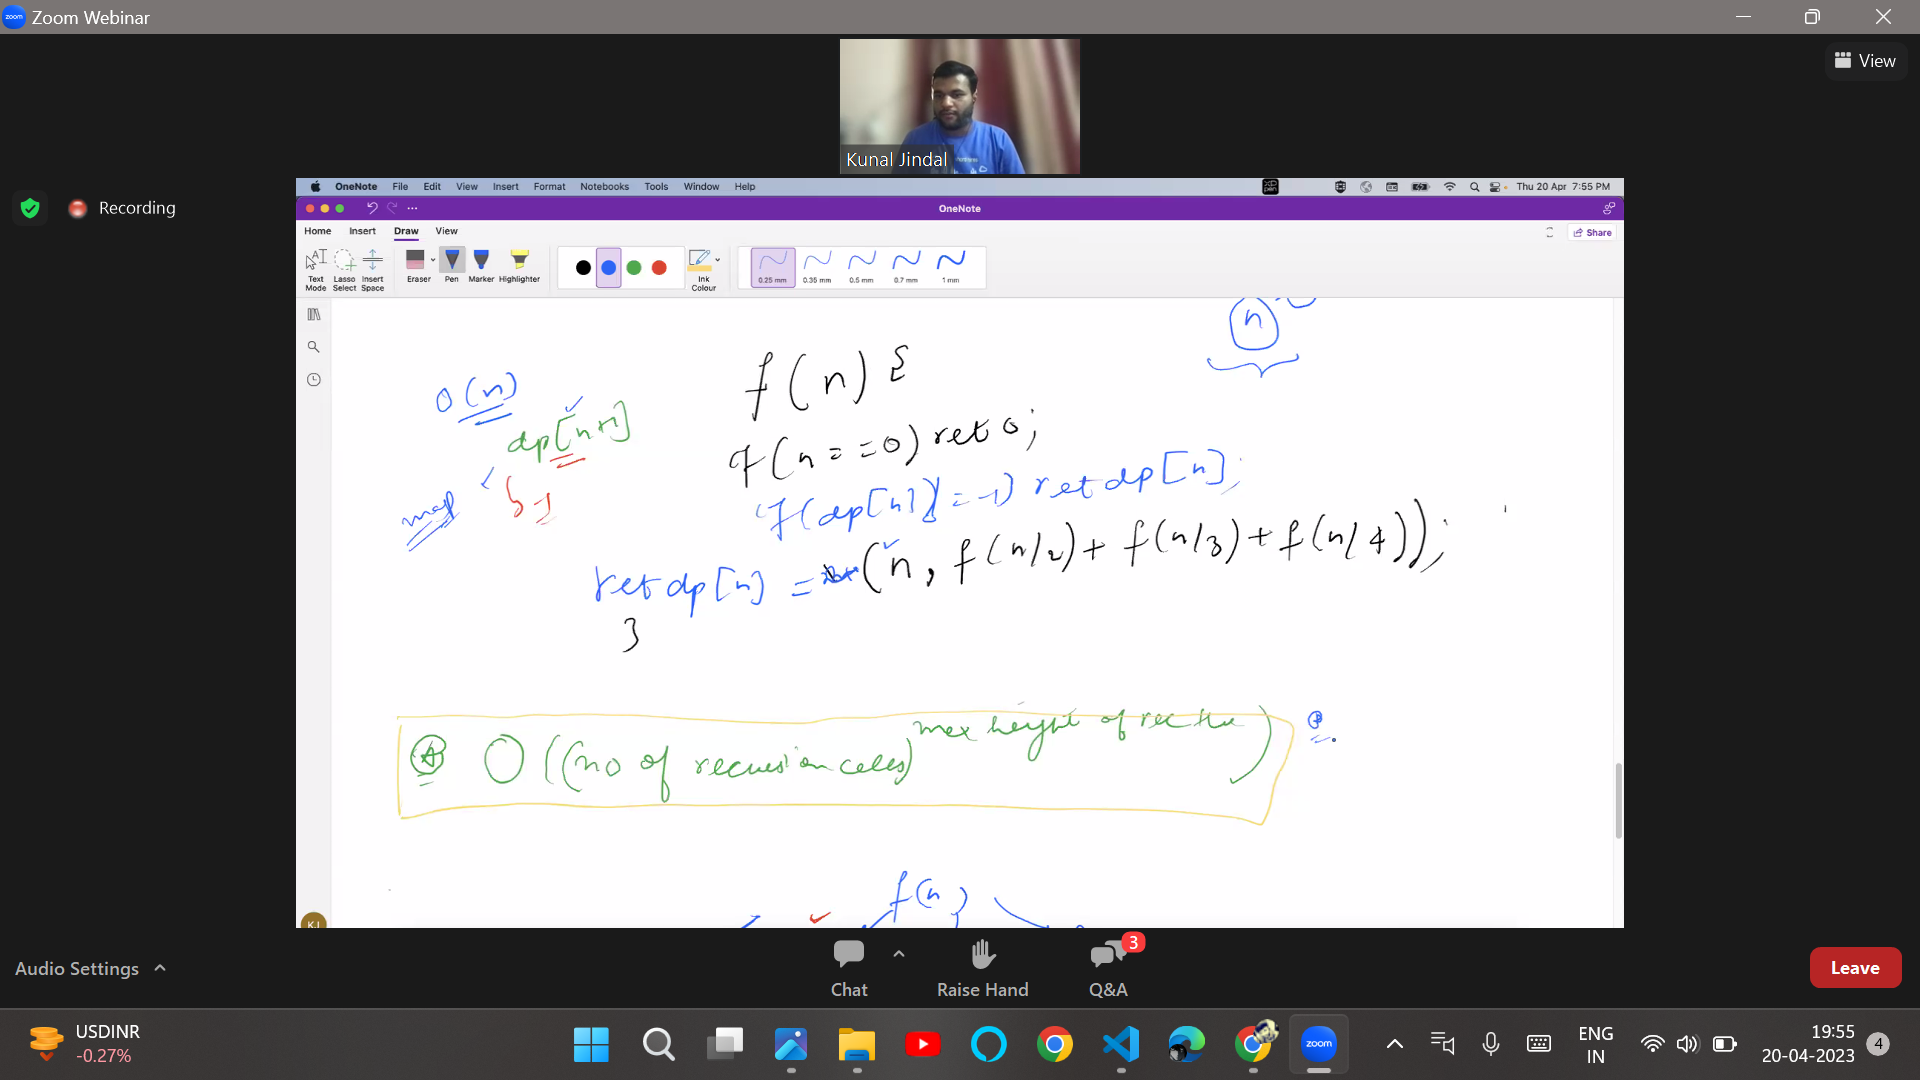 Zoom Webinar
View
Kunal Jindal
Recording
OneNote File Edit View Insert Format Notebooks Tools Window Help
Thu 20 Apr 7:55 PM
OneNote
Home Insert Draw View
Share
Text Mode
Lasso Select
Insert Space
Eraser
Pen
Marker
Highlighter
Ink Colour
0.25 mm 0.35 mm 0.5 mm 0.7 mm 1 mm
n
f(n) {
O(n)
dp[n+1]
if(n==0) ret 0;
map
-1
if(dp[n]!=-1) ret dp[n];
ret dp[n] = (n, f(n/2) + f(n/3) + f(n/4));
}
O((no of recursion calls) max height of rec
f(n)
KJ
Audio Settings
Chat
Raise Hand
Q&A
3
Leave
USDINR
-0.27%
zoom
ENG
IN
19:55
20-04-2023
4